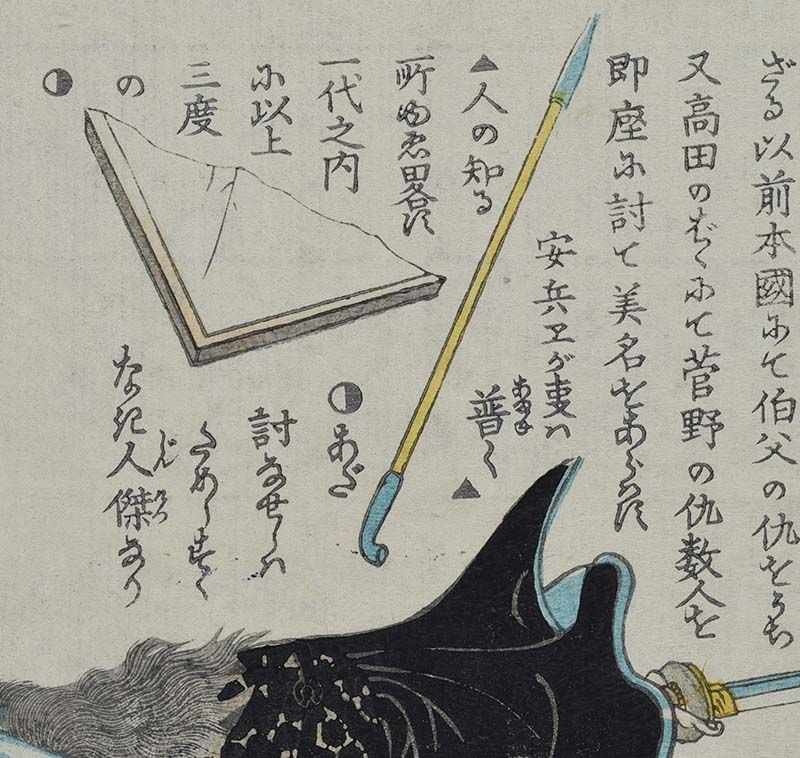 ざる以前本國にて伯父の仇をうち
又高田のばゝにて菅野の仇数人を
即座に討て美名をあらはす
安兵ヱが事は
普く▲
あまね
▲人の知る
所ゆゑ略す
一代之内
に以上
三度
の
◑
◑あだ
討なせしは
ためしすく
なき人傑なり
じんけつ